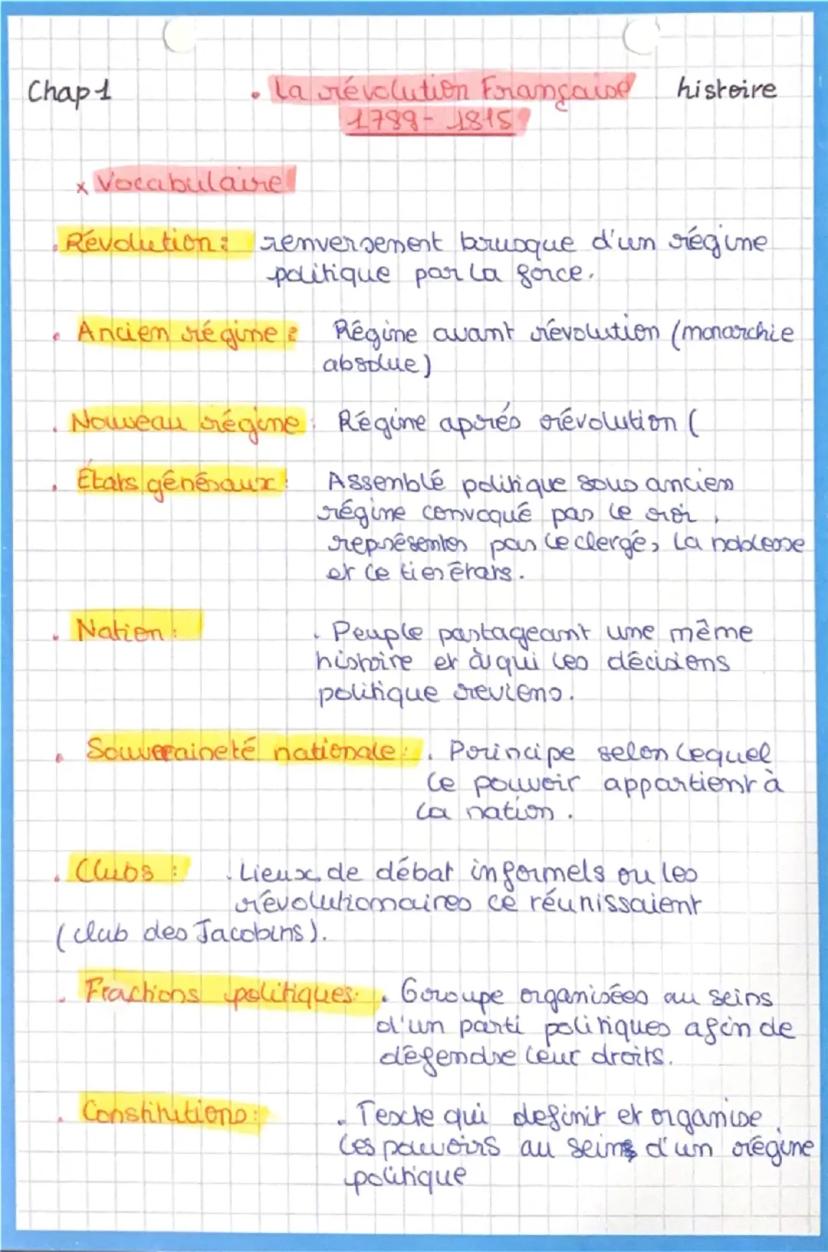 Chap 1 . La révolution Française histoire
1789 - 1815
x Vocabulaire
. Révolution : renversement brusque d'un régime
politique par la force.
. Ancien régime : Régime avant révolution (monarchie
absolue)
. Nouveau régime : Régime aprés révolution (
. Êtats généraux : Assemblé politique sous ancien
régime convoqué par le roi,
représenter par le clergé, la noblesse
et le tier états.
. Nation : . Peuple partageant une même
histoire et à qui les décisions
politique reviens.
. Souveraineté nationale : . Principe selon lequel
le pouvoir appartient à
la nation.
. Clubs : . Lieux de débat informels ou les
révolutionnaires ce réunissaient
(club des Jacobins).
. Fractions politiques : . Groupe organisées au seins
d'un parti politiques afin de
défendre leur droits.
. Constitutions : . Texte qui definit et organise
les pouvoirs au seins d'un régime
politique